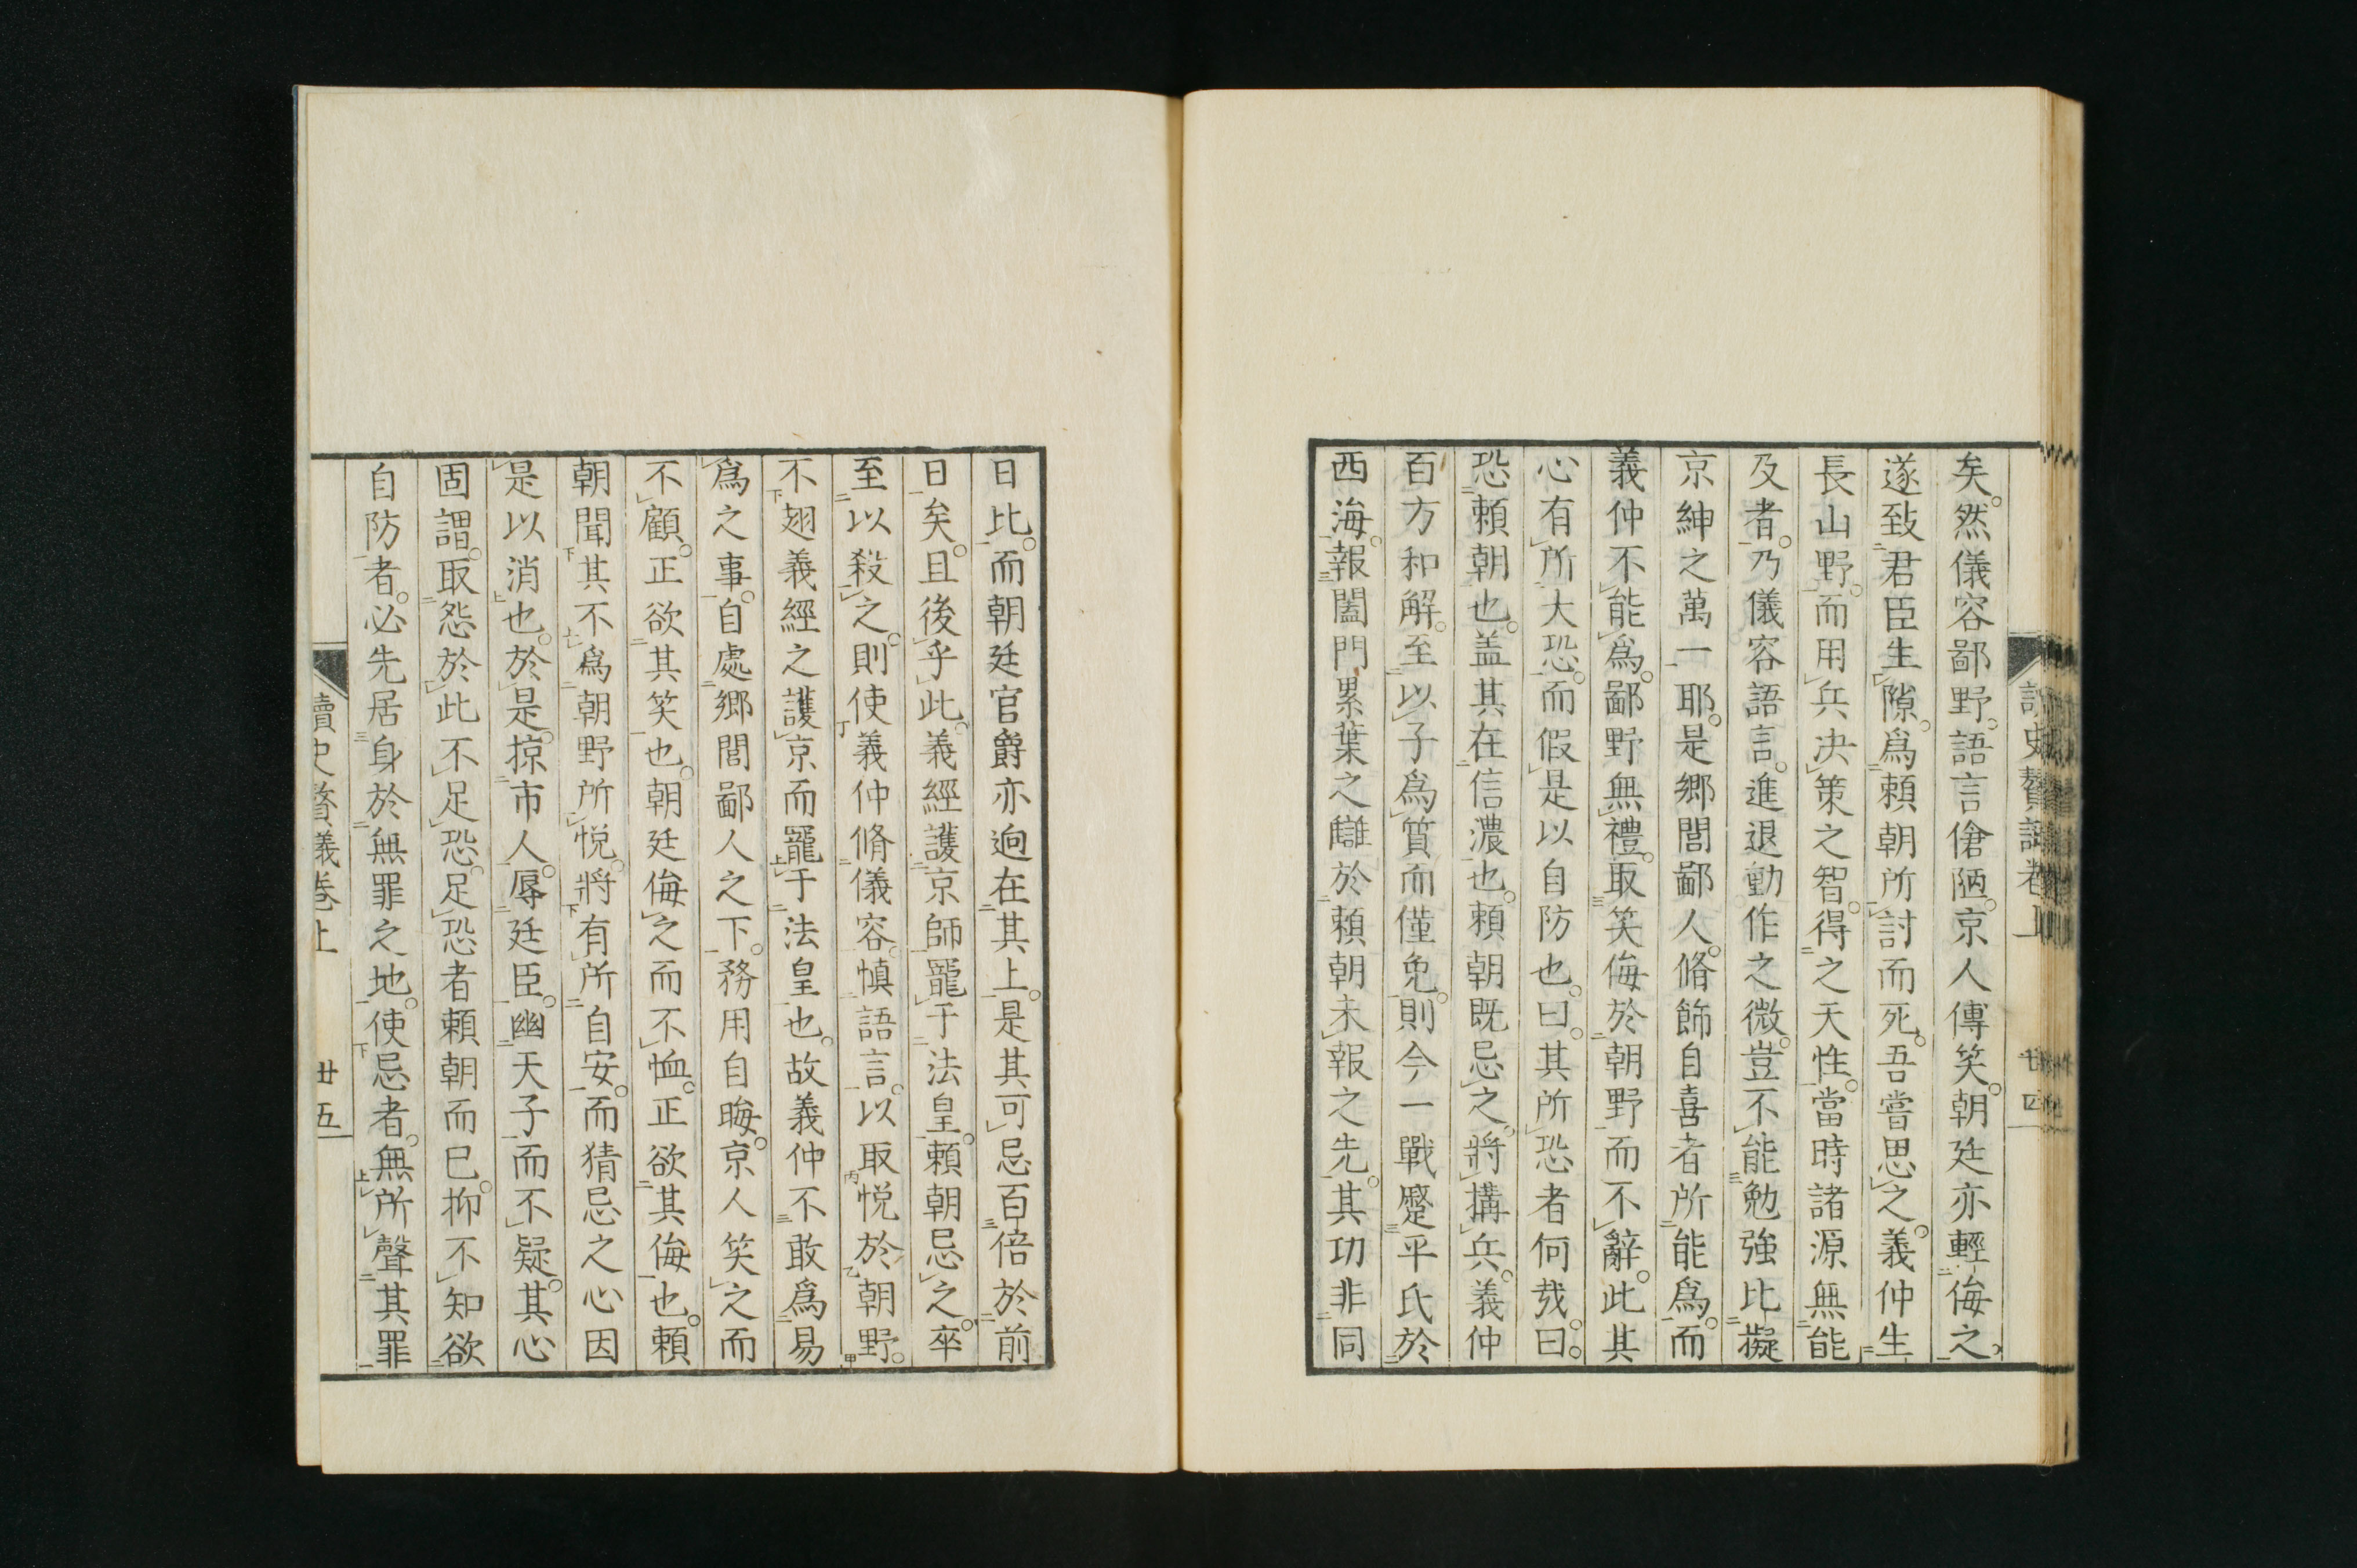 矣。然儀容鄙野。語言傖陋。京人傳笑。朝廷亦輕侮之、
遂致君臣生隙。爲頼朝所討而死。吾嘗思之。義仲生
長山野。而用兵决策之智。得之天性。當時諸源無能
及者。乃儀容語言。進退動作之微。豈不能勉強比擬
京紳之萬一耶。是郷閭鄙人。脩飾自喜者所能爲。而
義仲不能爲。鄙野無禮。取笑侮於朝野而不辭。此其
心有所大恐。而假是以自防也。曰。其所恐者何哉。曰。
恐頼朝也。盖其在信濃也。頼朝既忌之。將搆兵。義仲
百方和解。至以子爲質而僅免。則今一戰蹙平氏於
西海。報闔門累葉之讎於頼朝未報之先。其功非同
讀史贅議卷上
廿四
日比。而朝廷官爵亦逈在其上。是其可忌百倍於前
日矣。且後乎此。義經護京師寵于法皇。頼朝忌之。卒
至以殺之。則使義仲脩儀容。慎語言。以取悦於朝野。
不翅義經之護京而寵于法皇也。故義仲不敢爲易
爲之事。自處郷閭鄙人之下。務用自晦。京人笑之而
不顧。正欲其笑也。朝廷侮之而不恤。正欲其侮也。頼
朝聞其不爲朝野所悦。將有所自安。而猜忌之心因
是以消也。於是。掠市人。辱廷臣。幽天子而不疑。其心
固謂。取怨於此不足恐。足恐者頼朝而已。抑不知欲
自防者。必先居身於無罪之地。使忌者。無所聲其罪
讀史贅議卷上
廿五